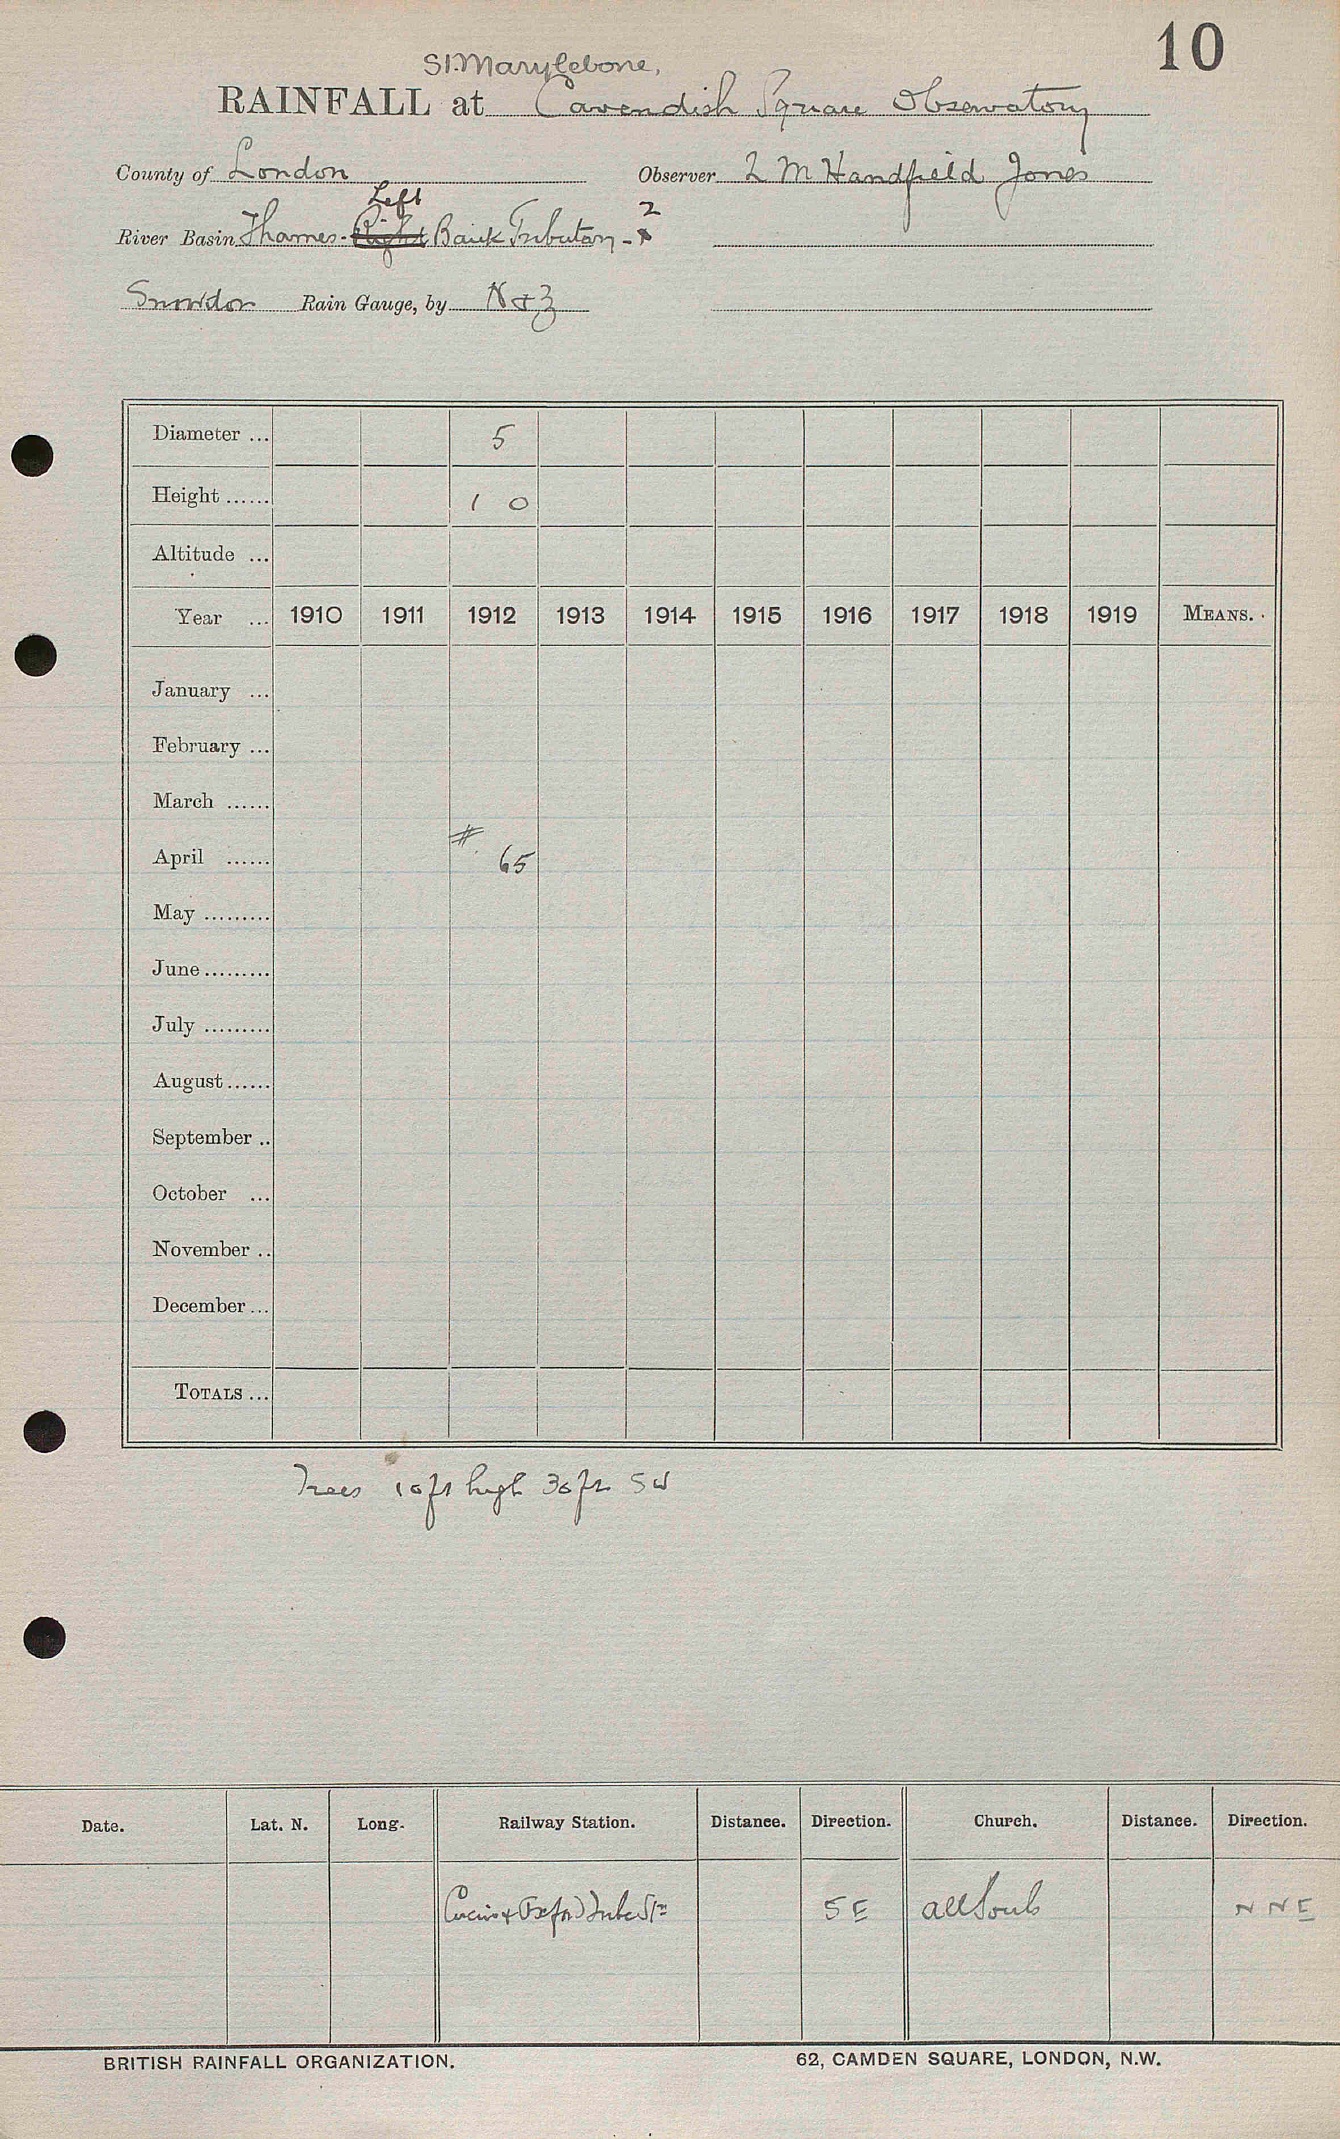 10
St. Marylebone,
RAINFALL at Cavendish Square Observatory
County of London Observer L M Handfield Jones
Left 2
River Basin Thames - Right Bank Tributary -
Snowdon Rain Gauge, by N & Z
Diameter ... 5
Height ...... 1 0
Altitude ...
Year ... 1910 1911 1912 1913 1914 1915 1916 1917 1918 1919 MEANS.
January ...
February ...
March ......
#
April ...... 65
May .........
June .........
July .........
August ......
September ..
October ...
November ..
December ...
TOTALS ...
Trees 10 ft high 30 ft SW
Date. Lat. N. Long. Railway Station. Distance. Direction. Church. Distance. Direction.
Oxford Tube Stn SE All Souls NNE
BRITISH RAINFALL ORGANIZATION. 62, CAMDEN SQUARE, LONDON, N.W.